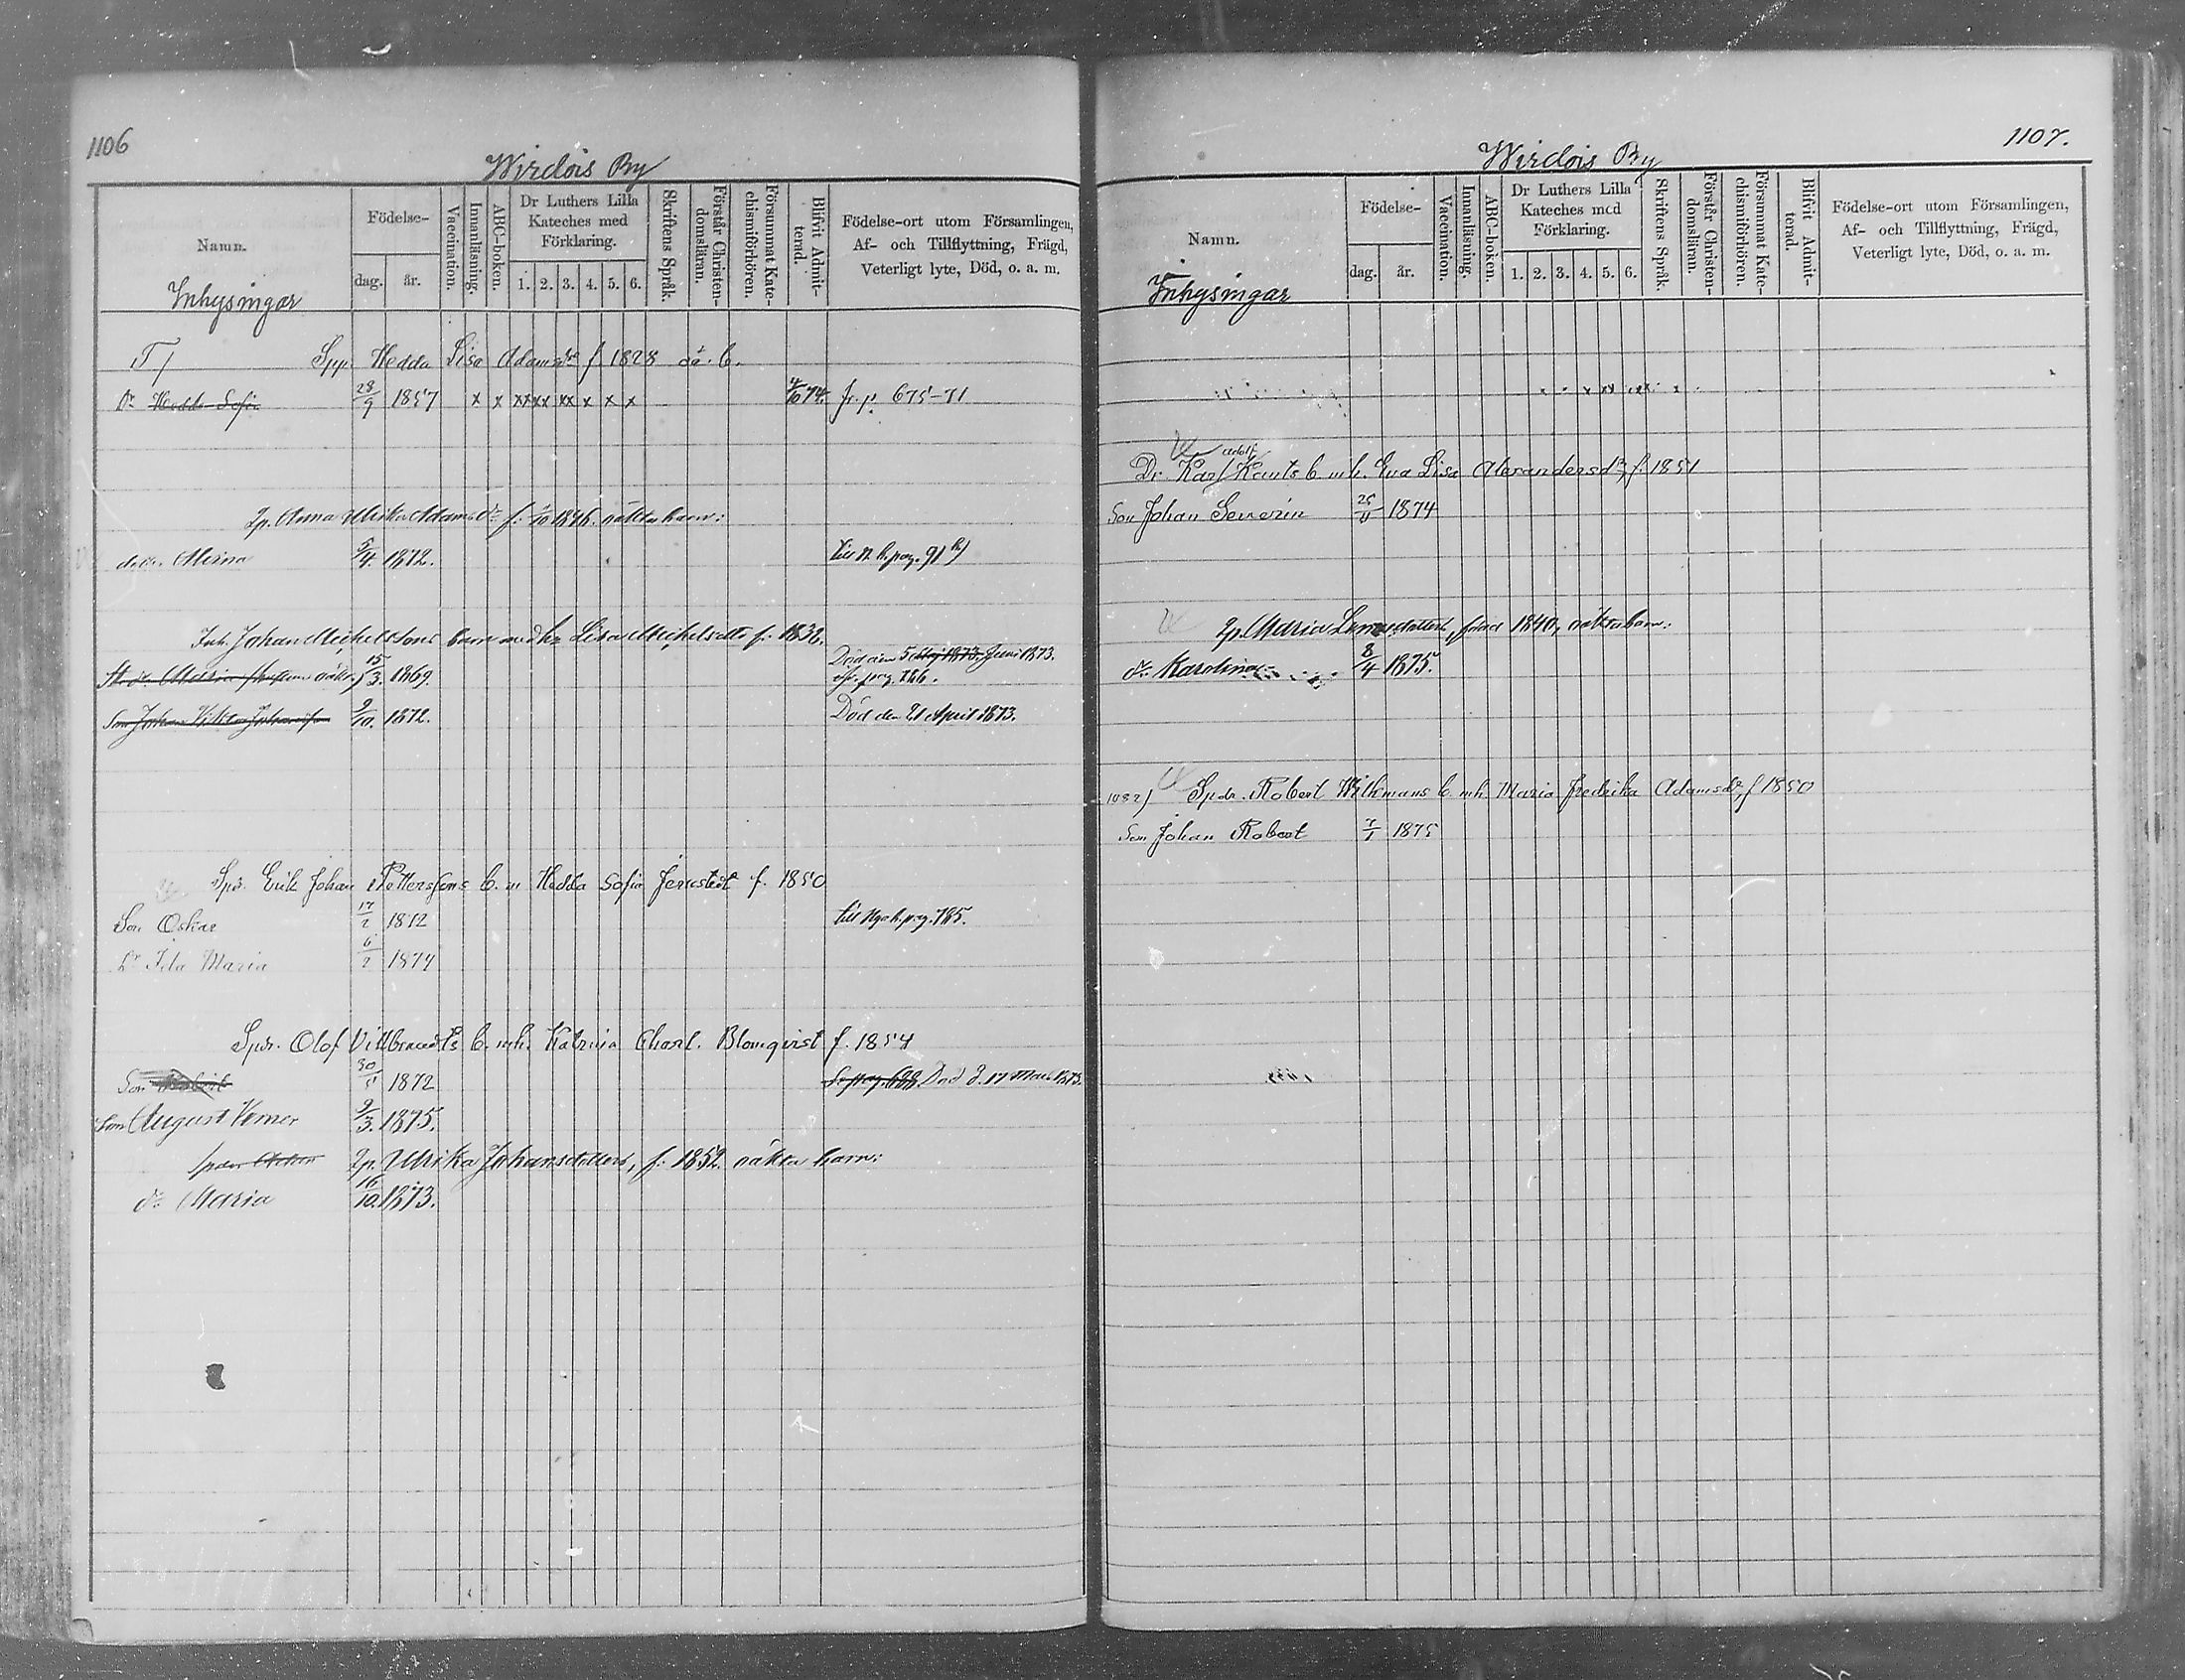 1106
Wirdois By
Namn.
Inhysingar
Födelse-
dag.
år.
Vaccination.
Innanläsning.
ABC-boken.
Dr Luthers Lilla
Kateches med
Förklaring.
1. 2. 3. 4. 5. 6.
Skriftens Språk.
Förstår Christen-
domsläran.
Försummat Kate-
chismiförhören.
Blifvit Admit-
terad.
Födelse-ort utom Församlingen,
Af- och Tillflyttning, Frägd,
Veterligt lyte, Död, o. a. m.
Hedda Lisa Adamsdr f 1828 oä. b.
dr Hedda Sofia 28/9 1857 x x xx xx xx x x x 4/10 74. fr. p. 675-71
Anna Ulrika Adamsdr f. 1846. oäkta barn:
5/4. 1872. till n. b. pag. 91
Inh. Johan Michelssons barn med h. Lisa Michelsdtr f. 1838.
15/3. 1869. Död den 5 Maj 1873. Juni 1873.
pag. 186.
Son Johan Viktor Johansson 9/10. 1872. Död den 21 April 1873.
Spr. Erik Johan Petterssons b. m Hedda Sofia Jernstedt f. 1850
Son Oskar 17/2 1872 till Nya b. pag. 785.
dr Ida Maria 6/2 1874
Spr. Olof Villbrandts b. mh. Katrina Charl. Blomqvist f. 1854
Son 30/5 1872 Se pag. 688. Död d. 17 1873.
Son August Verner 9/3. 1875.
Ulrika Johansdotters, f. 1852. oäkta barn:
dr Maria 16/10. 1873.
1107.
Wirdois By
Namn.
Inhysingar
Födelse-
dag.
år.
Vaccination.
Innanläsning.
ABC-boken.
Dr Luthers Lilla
Kateches med
Förklaring.
1. 2. 3. 4. 5. 6.
Skriftens Språk.
Förstår Christen-
domsläran.
Försummat Kate-
chismiförhören.
Blifvit Admit-
terad.
Födelse-ort utom Församlingen,
Af- och Tillflyttning, Frägd,
Veterligt lyte, Död, o. a. m.
Adolf
Dr. Karl b. mh. Eva Lisa Alexandersdr, f. 1851
Son Johan Severin 1874
Maria, född 1840, oäkta barn:
dr Karolina 8/4 1875.
1082) Spdr. Robert Wikmans b. mh Maria Fredrika Adamsdr, f 1850
Son Johan Robert 7/1 1875